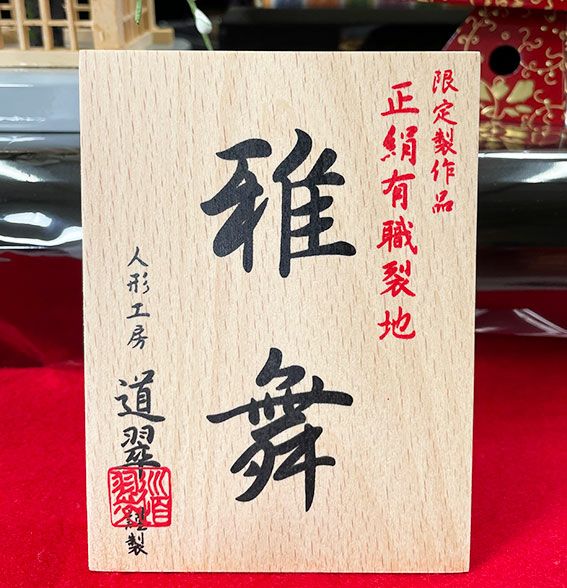 限定製作品
正絹有職裂地
雅舞
人形工房
道翠
謹製